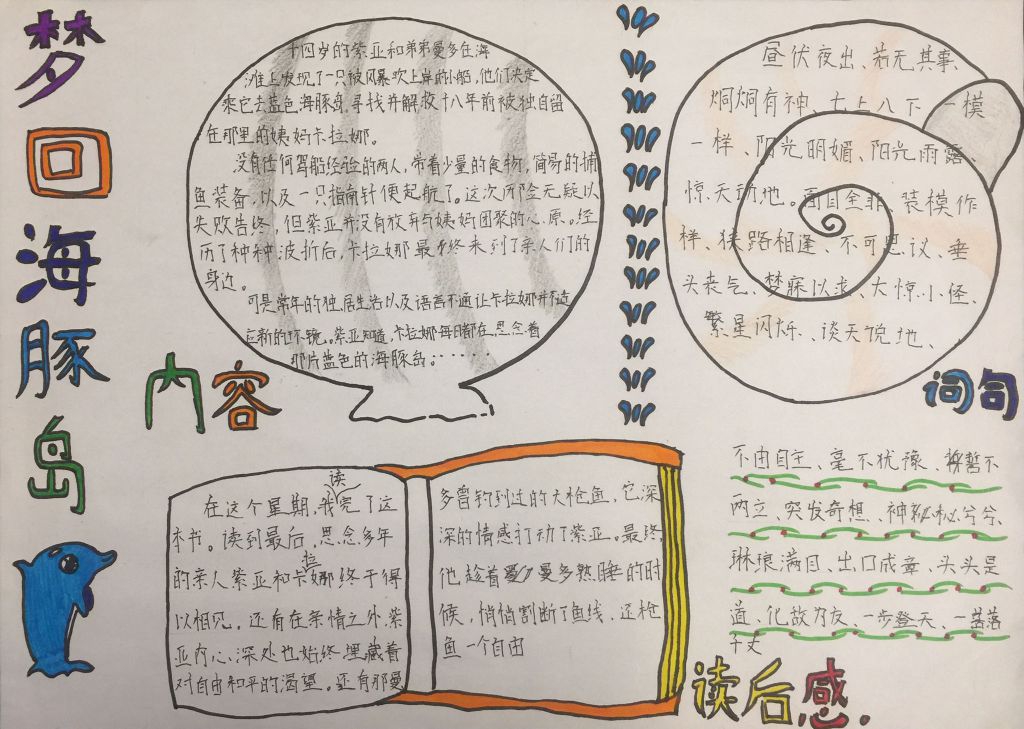 梦回海豚岛
十四岁的紫亚和弟弟曼多在海
滩上发现了一只被风暴吹上岸的小船，他们决定
乘它去蓝色海豚岛，寻找并解救十八年前被独自留
在那里的姨妈卡拉娜。
没有任何驾船经验的两人，带着少量的食物，简易的捕
鱼装备，以及一只指南针便起航了。这次历险无疑以
失败告终，但紫亚并没有放弃与姨妈团聚的心原。经
历了种种波折后，卡拉娜最终来到了亲人们的
身边。
可是常年的独居生活以及语言不通让卡拉娜并不适
应新的环境。紫亚知道，卡拉娜每日都在思念着
那片蓝色的海豚岛····
内容
昼伏夜出、若无其事、
炯炯有神、七上八下、一模
一样、阳光明媚、阳光雨露、
惊天动地。面目全非、装模作
样、狭路相逢、不可思议、垂
头丧气、梦寐以求、大惊小怪、
繁星闪烁、谈天说地、
词句
不由自主、毫不犹豫、誓不
两立、突发奇想、神秘兮兮、
琳琅满目、出口成章、头头是
道、化敌为友、一步登天、一落落
千丈
在这个星期，我读完了这
本书。读到最后，思念多年
的亲人紫亚和卡拉娜终于得
以相见。还有在亲情之外，紫
亚内心深处也始终埋藏着
对自由和平的渴望。还有那曼
多曾钓到过的大枪鱼，它深
深的情感打动了紫亚。最终，
他趁着曼多熟睡的时
候，悄悄割断了鱼线，还枪
鱼一个自由
读后感.